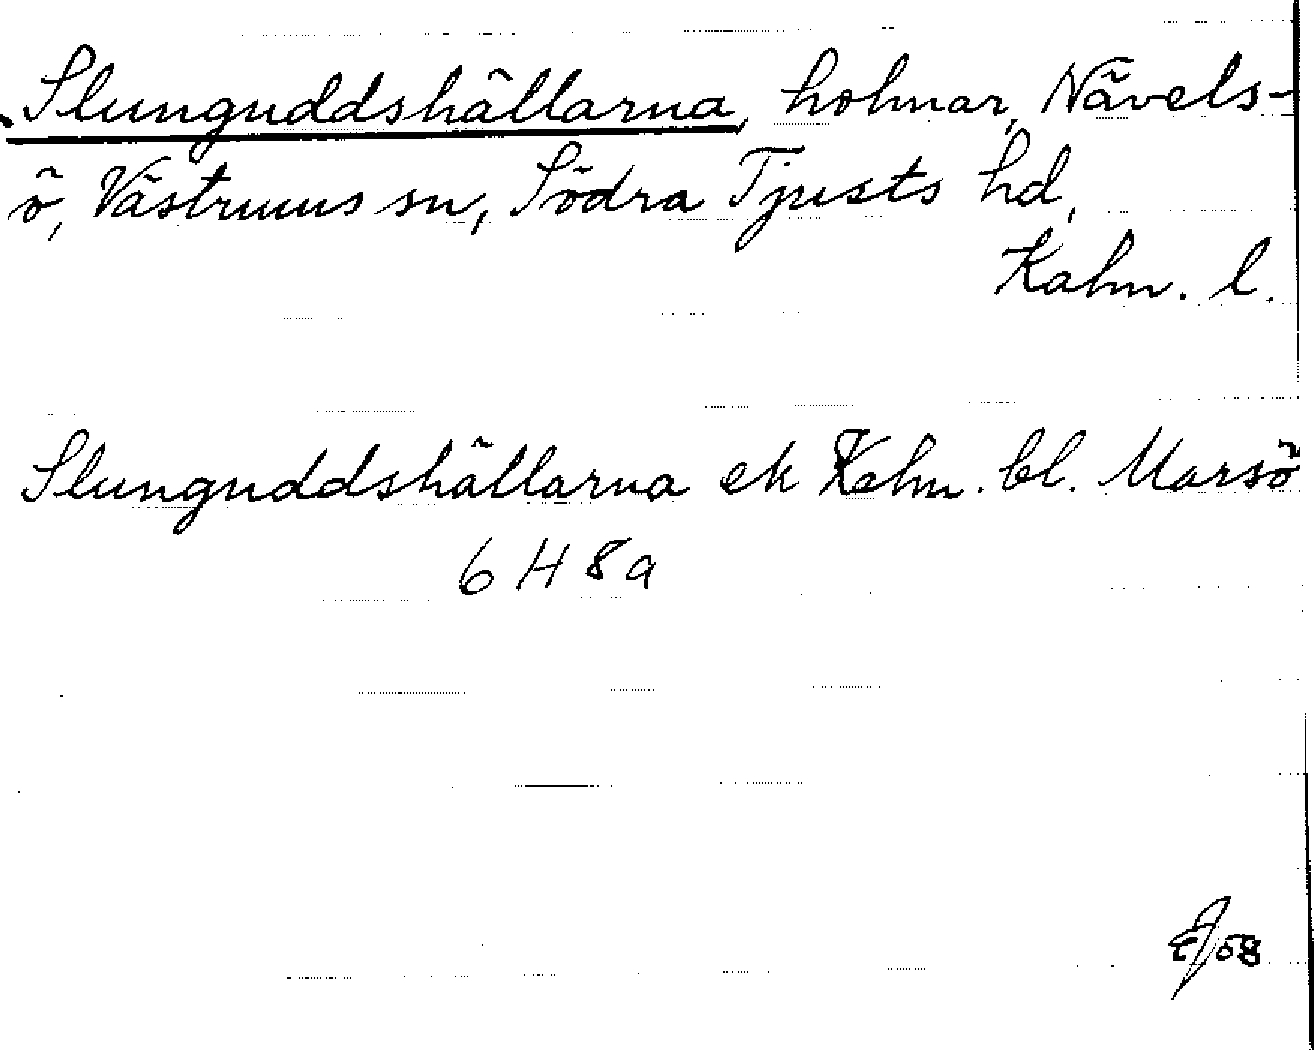 Slunguddshällarna, holmar, Nävels-
ö, Västrums sn, Södra Tjusts hd,
Kalm. l.
Slunguddshällarna ek Kalm. bl. Marsö
6 H 8a
EJ 58